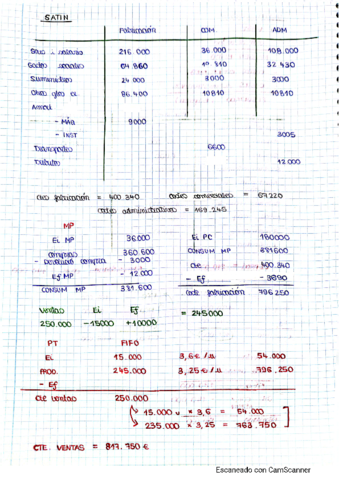 SATIN
Fabricación COM ADM
Sous i salaris 216.000 36.000 108.000
Gastos sociales 64.860 10 810 32 430
Suministros 24 000 3000 3000
86.400 10810 10810
Amort
- Màq 9000
- INST 3005
Transportes 6600
Tributos 12 000
cte fabricación = 400 340 costes comerciales = 67220
costes administrativos = 169.245
MP
Ei MP 36000 Ei PC 180000
Compras 360.600 CONSUM MP 381600
- compra - 3000 Cte 400.340
Ef MP - 12 000 - Ef - 3890
CONSUM MP 381.600 Coste fabricación 796 250
Ventas Ei Ef
250.000 - 15000 + 10000 = 245000
PT FIFO
Ei 15.000 3,6 €/u 54.000
PROD. 245.000 3,25 €/u 796.250
- Ef
Cte ventas 250.000
15.000 u × 3,6 = 54.000
235.000 × 3,25 = 763.750
CTE. VENTAS = 817.750 €
Escaneado con CamScanner